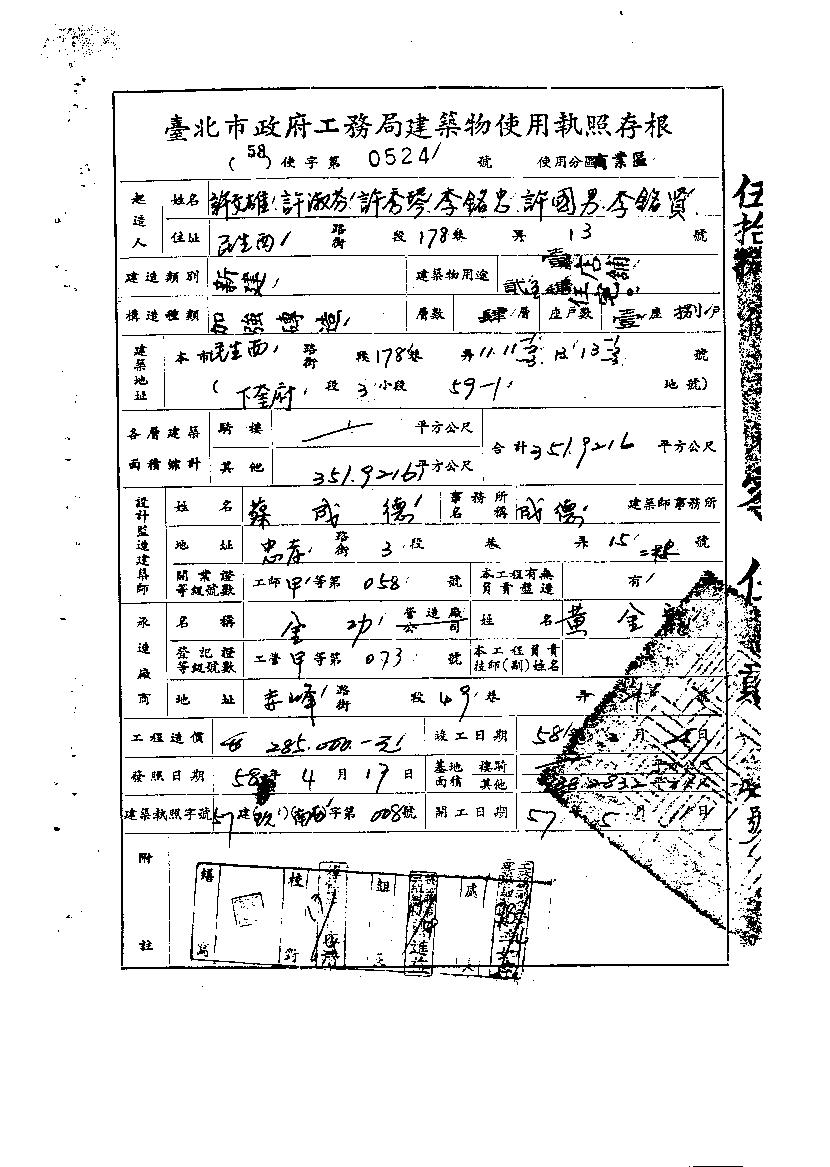 臺北市政府工務局建築物使用執照存根
(58)使字第 0524 號 使用分區商業區
起造人 姓名 許文雄 許淑芬 許秀琴 李銘忠 許國男 李銘賢
住址 民生西 路街 段 178 巷 弄 13 號
建造類別 新建 建築物用途 壹店舖 貳至肆住宅。
構造種類 加強磚造 層數 肆層 座戶數 壹座 捌戶
建築地址 本市民生西 路街 段 178 巷 弄 11. 號
(下奎府 段 3 小段 59-1 地號)
各層建築面積總計 騎樓 平方公尺 合計 351.9216 平方公尺
其他 351.9216 平方公尺
設計監造建築師 姓名 蔡成德 事務所名稱 成德 建築師事務所
地址 忠孝 路街 3 段 巷 弄 15 號
開業證等級號數 工師甲等第 058 號 本工程有無負責監造 有
承造廠商 名稱 金功 營造廠公司 姓名 黃金龍
登記證等級號數 工營甲等第 073 號 本工程負責技師(副)姓名
地址 李峰 路街 段 49 巷 弄
工程造價 285.000.-元 竣工日期 58 月 日
發照日期 58 年 4 月 17 日 基地面積 騎樓 其他
建築執照字號 57 建 字第 008 號 開工日期 57 5 月 日
附註
繕寫 校對 組 處
伍拾